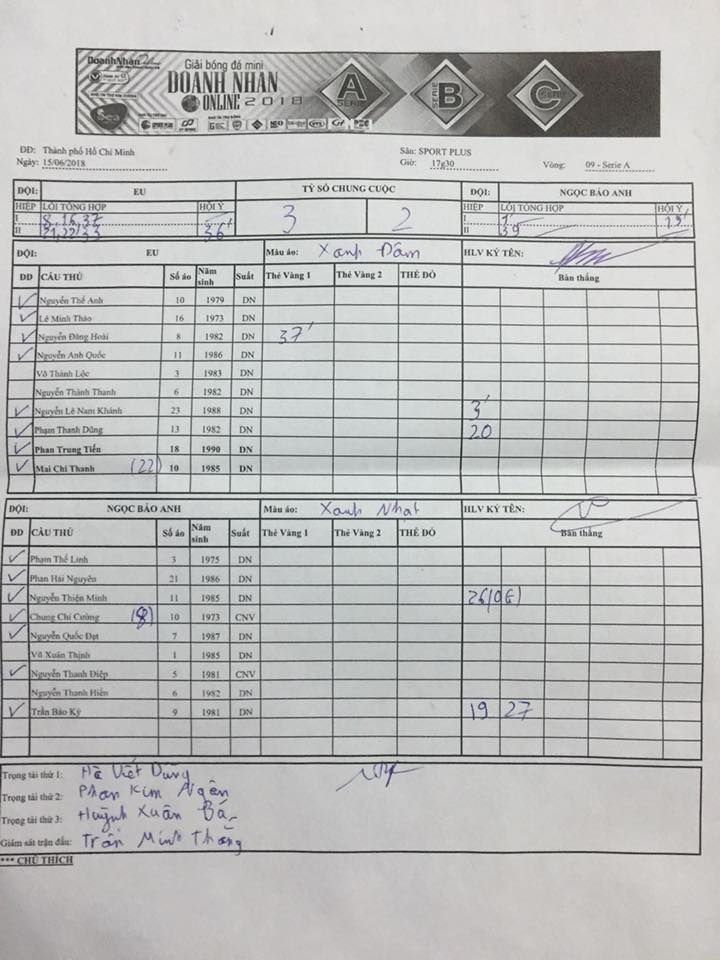 DoanhNhân
Giải bóng đá mini
DOANH NHÂN
ONLINE 2018
A SERIE
B SERIE
C SERIE
Sea
ĐĐ: Thành phố Hồ Chí Minh Sân: SPORT PLUS
Ngày: 15/06/2018 Giờ: 17g30 Vòng: 09 - Serie A
ĐỘI: EU TỶ SỐ CHUNG CUỘC ĐỘI: NGỌC BẢO ANH
HIỆP LỖI TỔNG HỢP HỘI Ý 3 2 HIỆP LỖI TỔNG HỢP HỘI Ý
I 8,16,37 I 1' 19'
II 21,22,33 36' II 39
ĐỘI: EU Màu áo: Xanh Đậm HLV KÝ TÊN:
ĐD CẦU THỦ Số áo Năm sinh Suất Thẻ Vàng 1 Thẻ Vàng 2 THẺ ĐỎ Bàn thắng
Nguyễn Thế Anh 10 1979 DN
Lê Minh Thảo 16 1973 DN
Nguyễn Đăng Hoài 8 1982 DN 37'
Nguyễn Anh Quốc 11 1986 DN
Võ Thành Lộc 3 1983 DN
Nguyễn Thành Thanh 6 1982 DN
Nguyễn Lê Nam Khánh 23 1988 DN 3'
Phạm Thanh Dũng 13 1982 DN 20
Phan Trung Tiến 18 1990 DN
Mai Chí Thanh (22) 10 1985 DN
ĐỘI: NGỌC BẢO ANH Màu áo: Xanh Nhạt HLV KÝ TÊN:
ĐD CẦU THỦ Số áo Năm sinh Suất Thẻ Vàng 1 Thẻ Vàng 2 THẺ ĐỎ Bàn thắng
Phạm Thế Linh 3 1975 DN
Phan Hải Nguyên 21 1986 DN
Nguyễn Thiện Minh 11 1985 DN 26(OG)
Chung Chí Cường (8) 10 1973 CNV
Nguyễn Quốc Đạt 7 1987 DN
Vũ Xuân Thịnh 1 1985 DN
Nguyễn Thanh Điệp 5 1981 CNV
Nguyễn Thanh Hiền 6 1982 DN
Trần Bảo Kỳ 9 1981 DN 19 27
Trọng tài thứ 1: Hà Viết Dũng
Trọng tài thứ 2: Phan Kim Ngân
Trọng tài thứ 3: Huỳnh Xuân Bá
Giám sát trận đấu: Trần Minh Thắng
*** CHÚ THÍCH